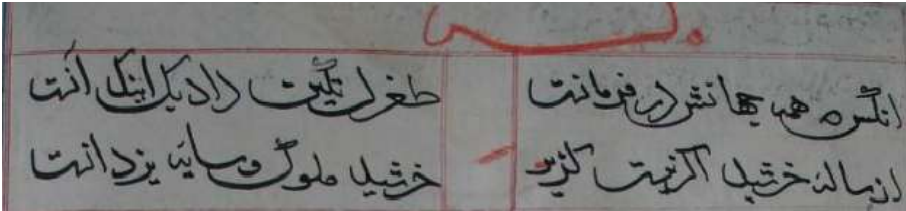 انکس که همه جهانش در فرمانست طغرل تکین دادبک اینک انست
از سایه خرشید اکر نیست کزیر خرشید ملوک و سایه یزدانست